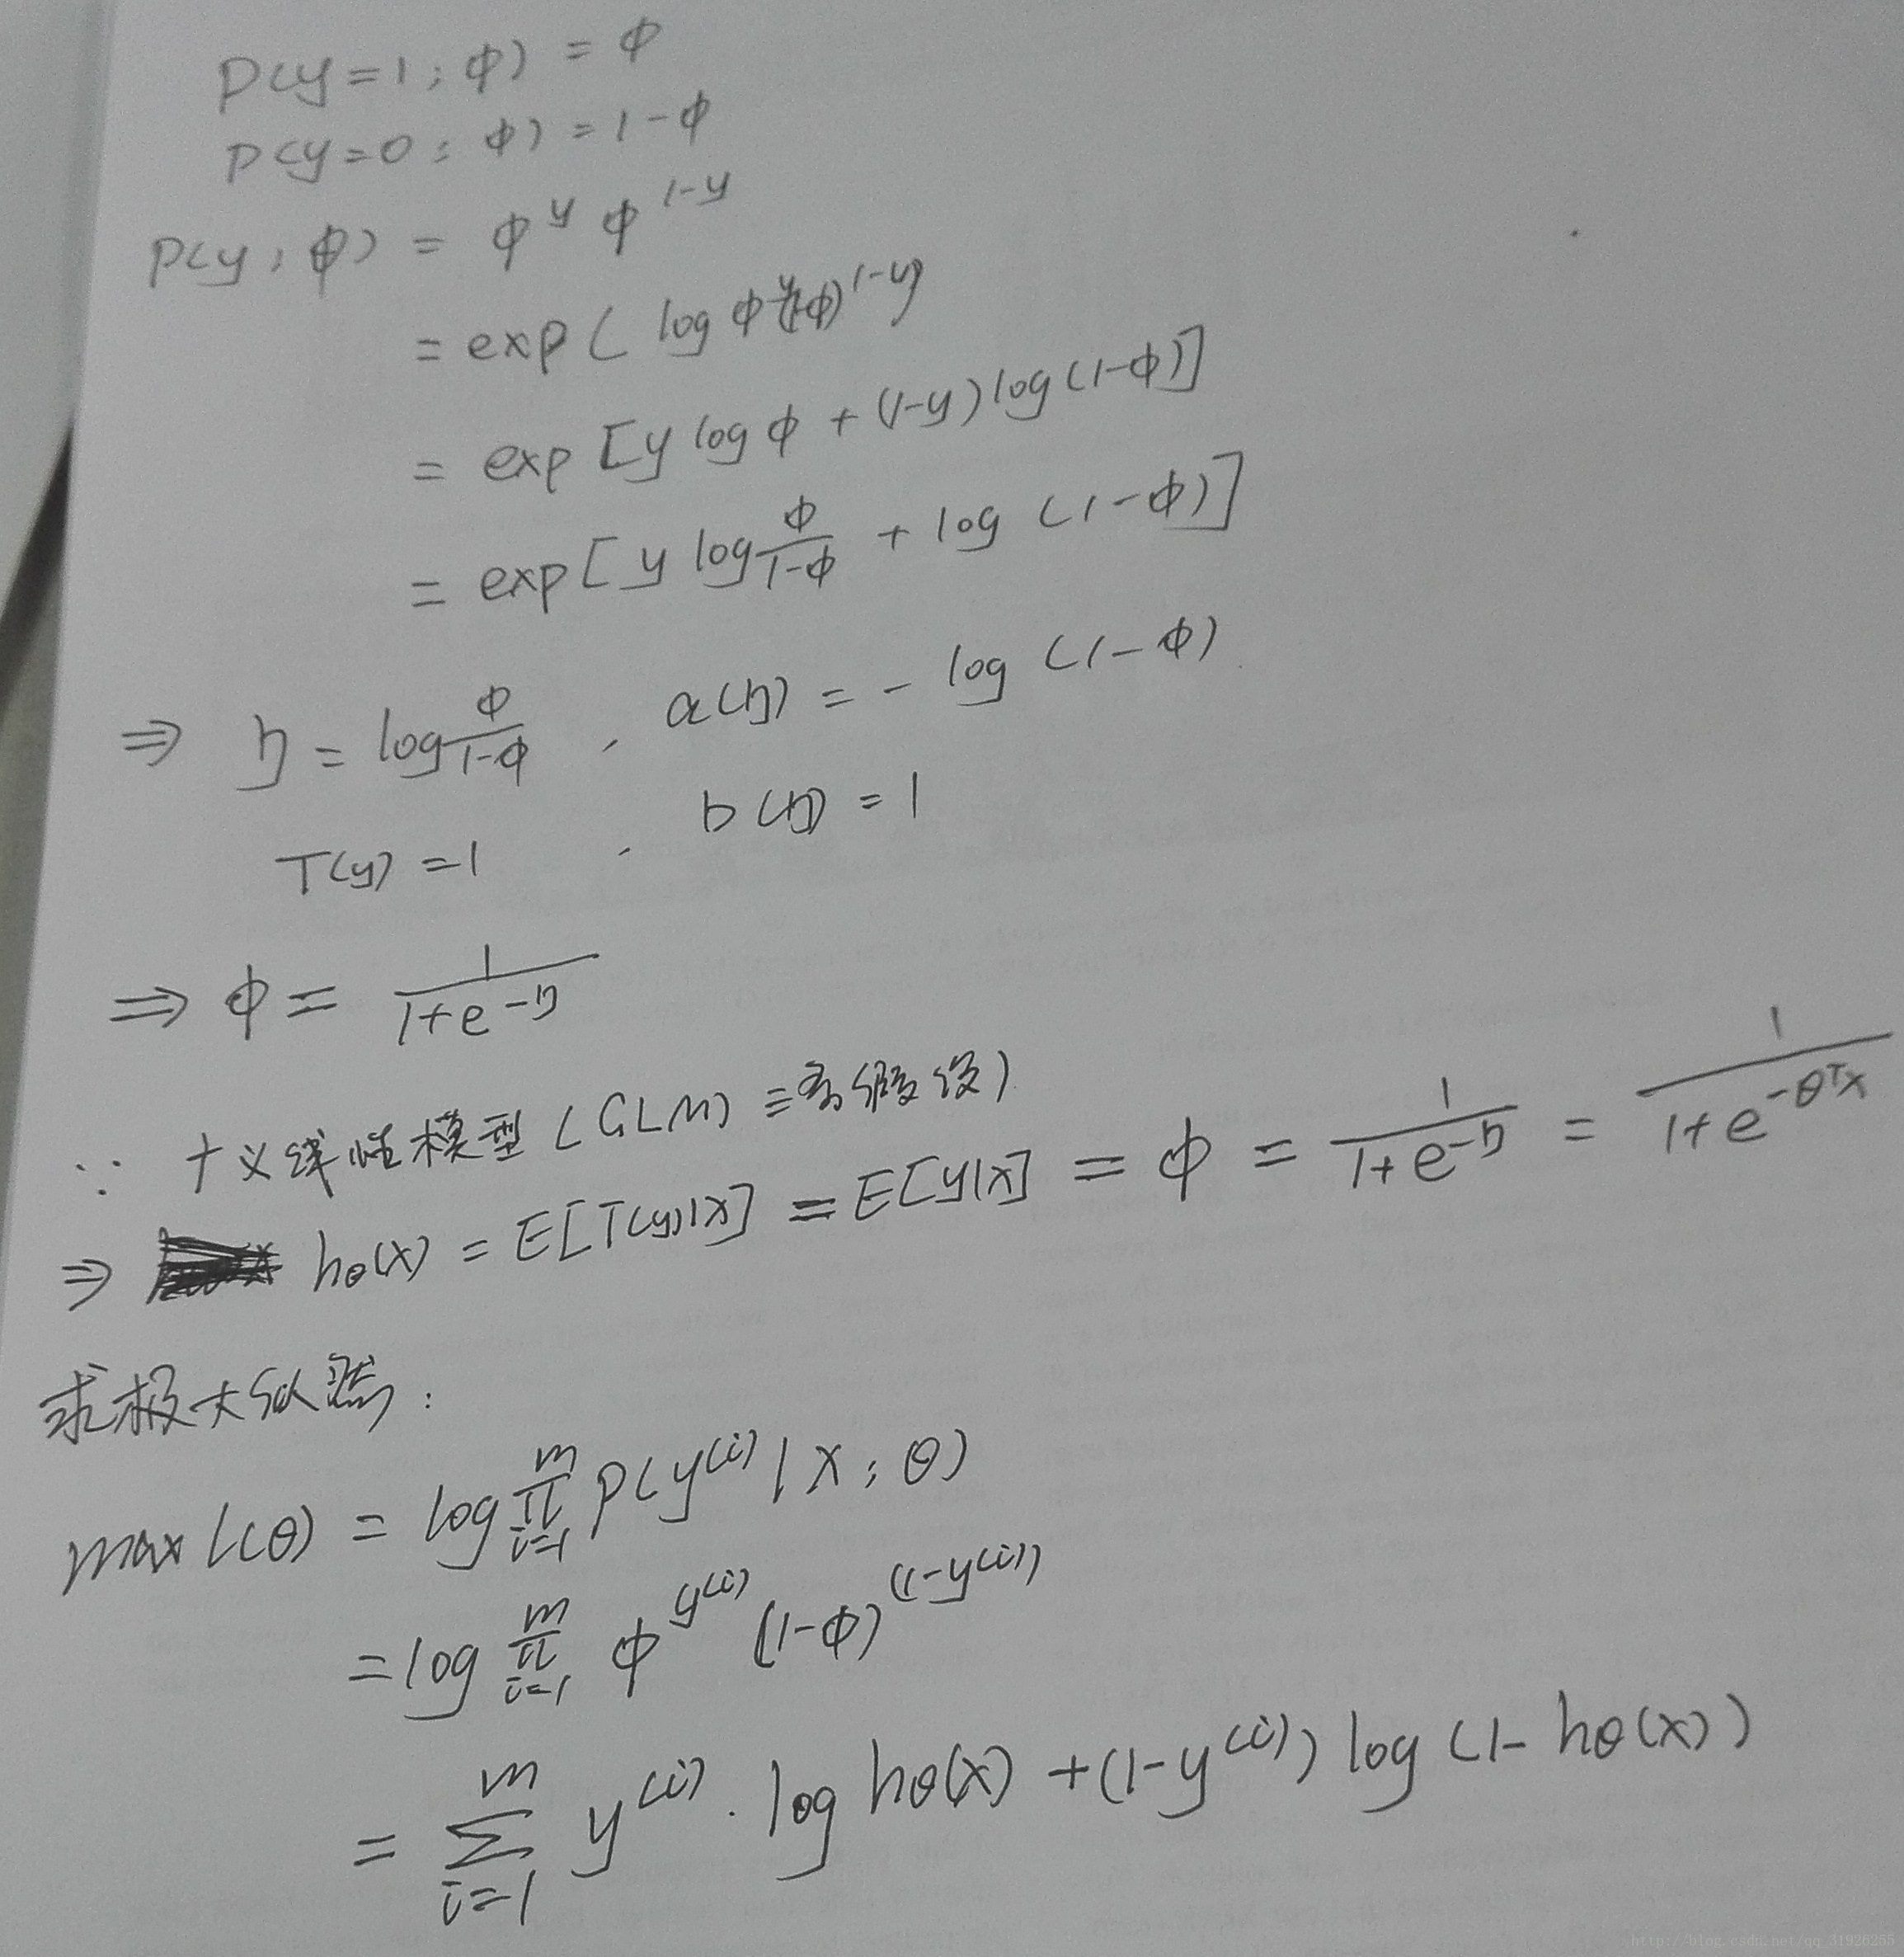 P(y=1;φ) = φ
P(y=0;φ) = 1-φ
P(y;φ) = φ^y φ^{1-y}
= exp( log φ^y(1-φ)^{1-y})
= exp[y log φ + (1-y) log(1-φ)]
= exp[y log φ/(1-φ) + log (1-φ)]
⇒ η = log φ/(1-φ) , a(η) = - log (1-φ)
T(y) =1 , b(η) = 1
⇒ φ = 1/(1+e^{-η})
∵ 广义线性模型(GLM)三条假设)
⇒ hθ(x) = E[T(y)|x] = E[y|x] = φ = 1/(1+e^{-η}) = 1/(1+e^{-θ^T x})
求极大似然:
max l(θ) = log ∏_{i=1}^{m} P(y^{(i)} | x ; θ)
= log ∏_{i=1}^{m} φ^{y^{(i)}} (1-φ)^{(1-y^{(i)})}
= ∑_{i=1}^{m} y^{(i)} · log hθ(x) + (1-y^{(i)}) log (1- hθ(x))
http://blog.csdn.net/qq_31926255